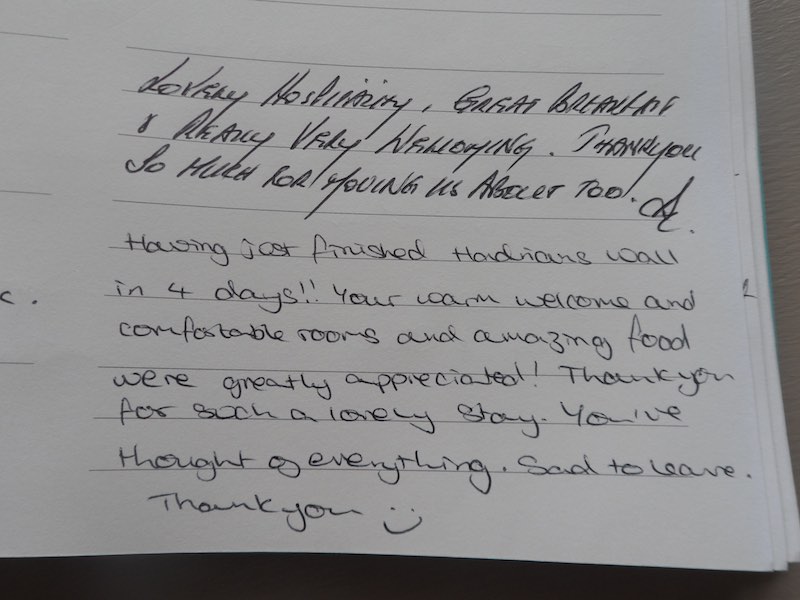 Lovely Hospitality, Great Breakfast
& Really Very Welcoming. Thankyou
So Much for moving us about too.
Having just finished Hadrians wall
in 4 days!! Your warm welcome and
comfortable rooms and amazing food
were greatly appreciated! Thank you
for such a lovely stay. You've
thought of everything. Sad to leave.
Thank you :)
c.